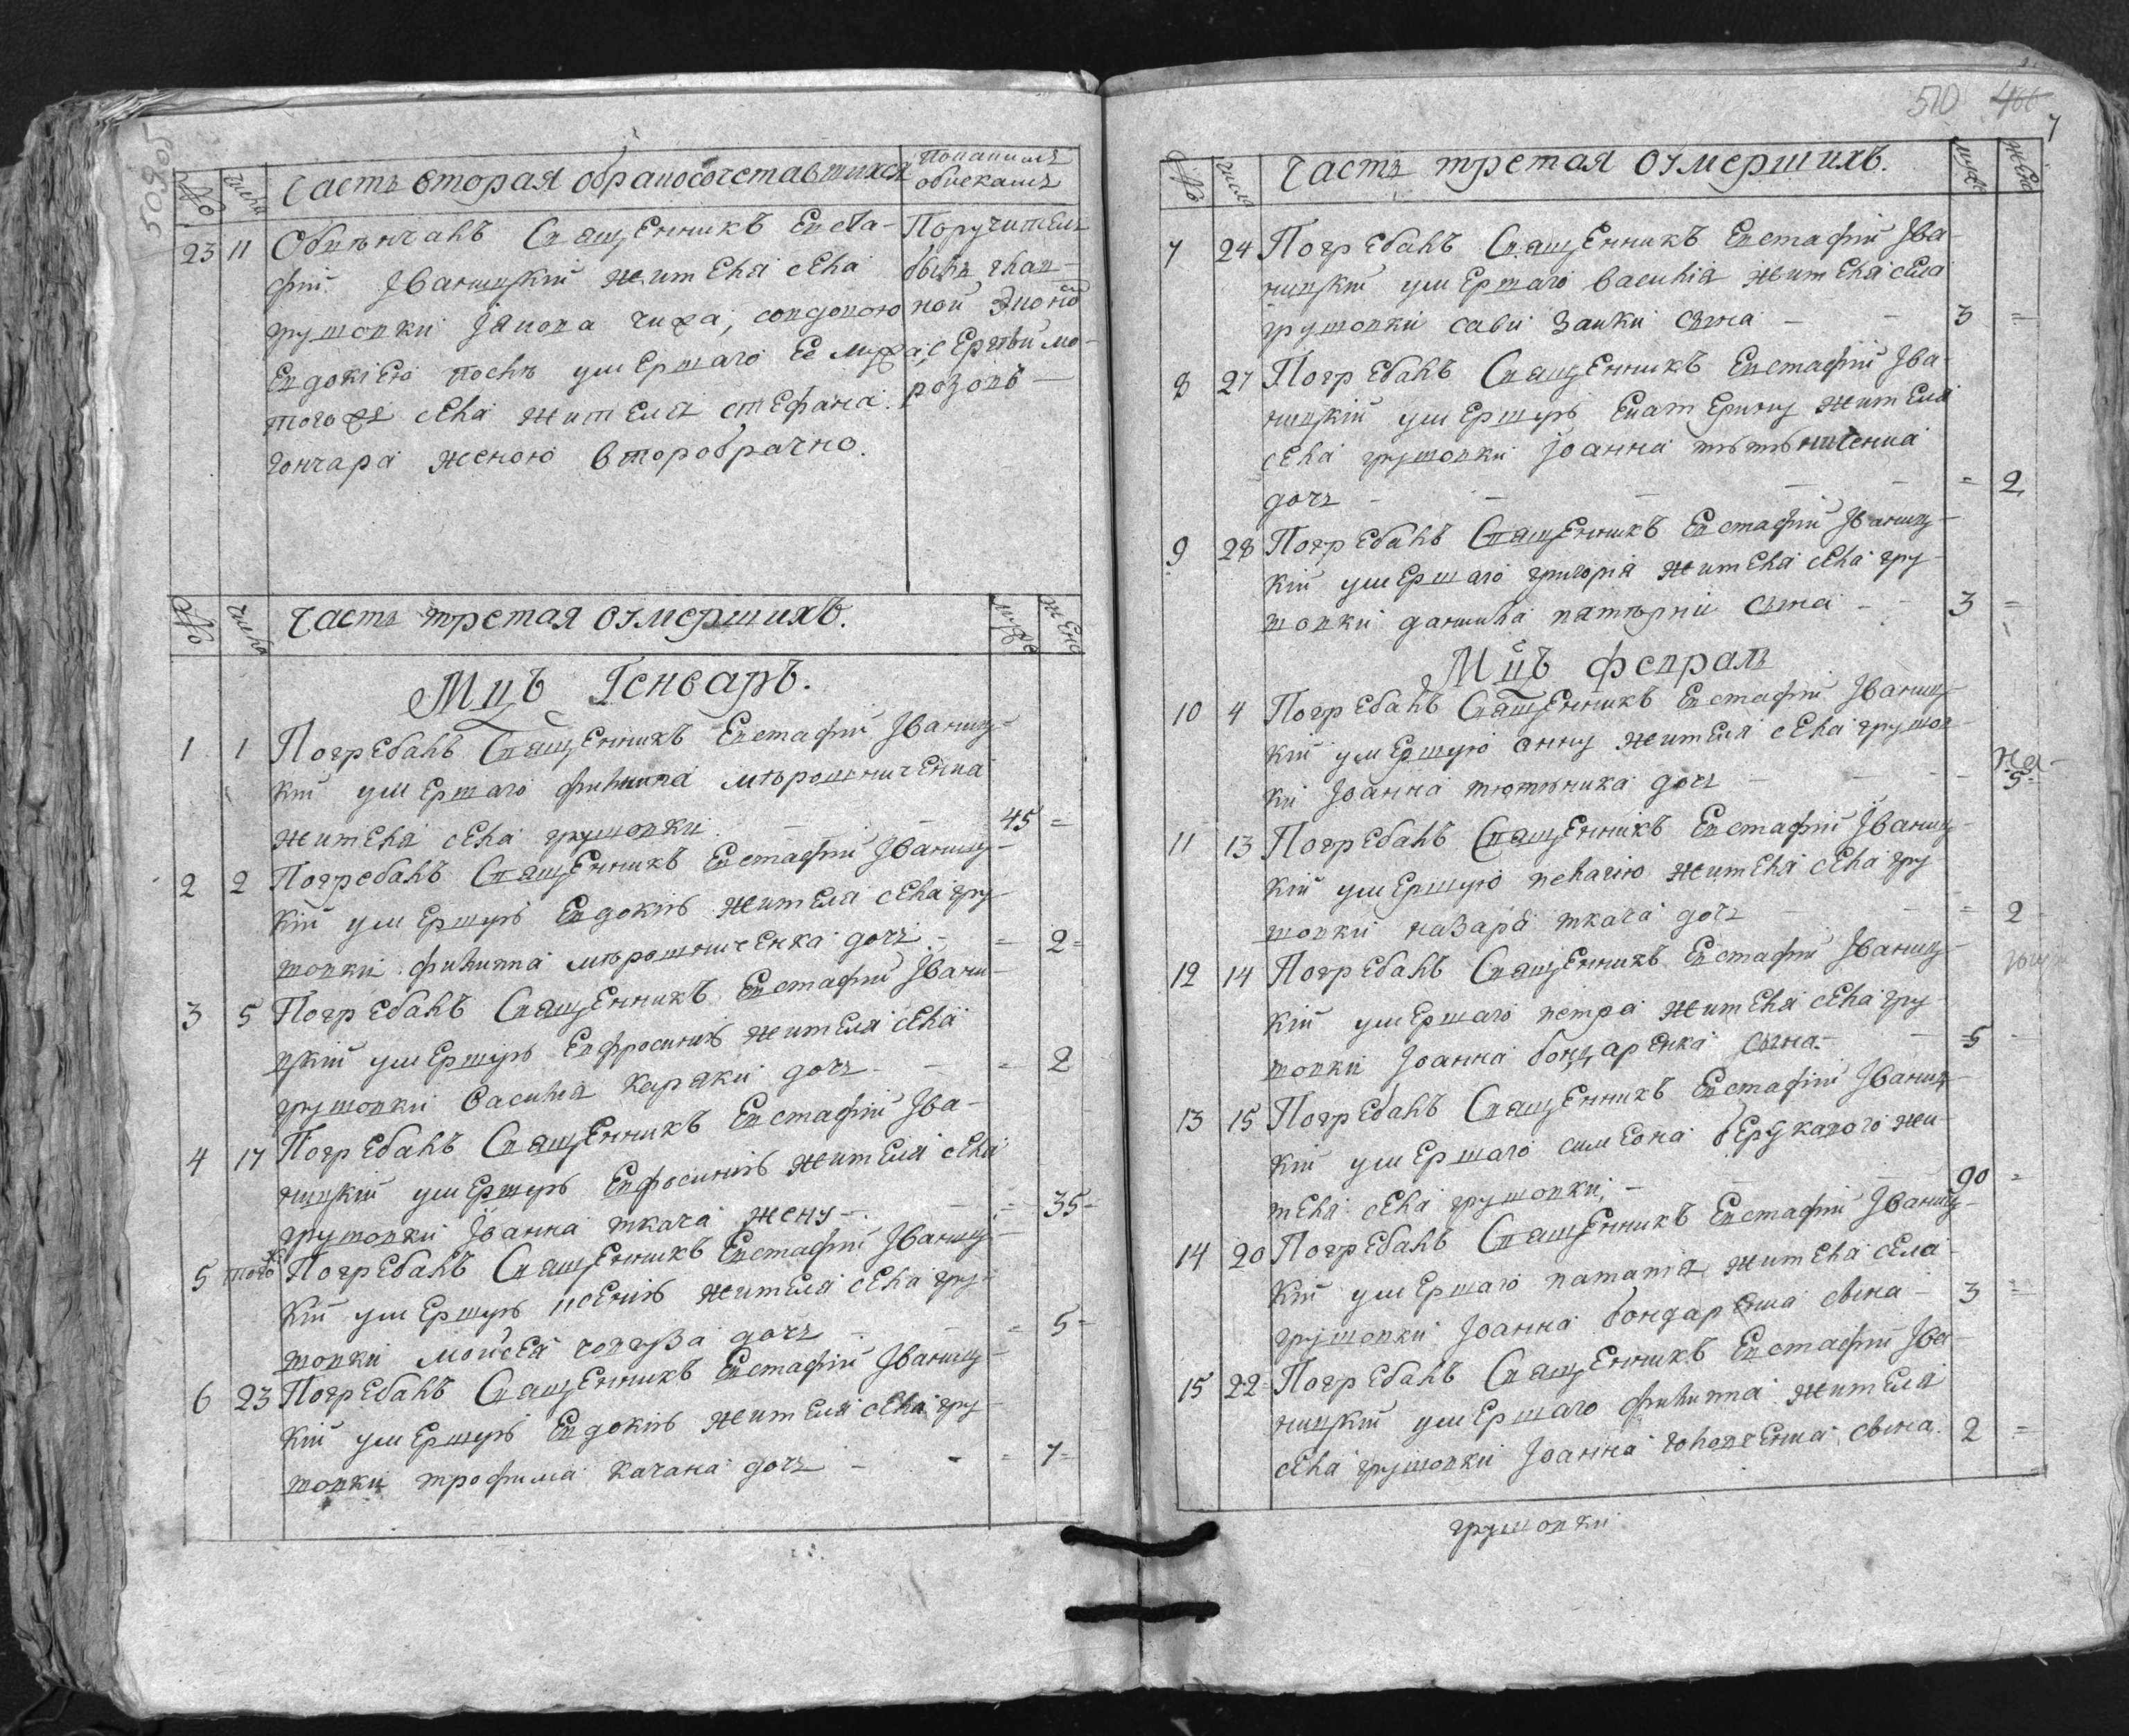 509об
№
числа
Часть вторая обрачосочетавшихся
Попапимъ
обискамъ
23 11 Обвѣнчалъ Священникъ Евста-
фій Іваницкій жителя села
грушовки Іякова чижа, совдовою
Евдокіею послѣ умершаго Ее мужа
тогожъ села жителя стефана
гончара женою второбрачно.
Поручителъ
билъ глав-
ной
Сергѣй мо-
розовъ —
№
числа
Часть третая оумершихъ.
мужеска
женска
Мцъ Генваръ.
1 1 Погребалъ Священникъ Евстафій Іваниц-
кій умершаго филиппа мѣрошниченка
жителя села грушовки 45 =
2 2 Погребалъ Священникъ Евстафій Іваниц-
кій умершую Евдокію жителя села гру-
шовки филиппа мѣрошниченка дочъ - = 2 =
3 5 Погребалъ Священникъ Евстафій Івани-
цкій умершую Евфросинію жителя села
грушовки Василія каряки дочъ - - = 2
4 17 Погребалъ Священникъ Евстафій Іва-
ницкій умершую Евфосинію жителя села
грушовки Іоанна ткача жену - = 35 -
5 тогож Погребалъ Священникъ Евстафій Іваниц-
кій умершую ксенію жителя села гру-
шовки Мойсея дочъ - = 5 -
6 23 Погребалъ Священникъ Евстафій Іваниц-
кій умершую Евдокію жителя села гру-
шовки трофима качана дочъ - - = 7 =
510 466
7
№
числа
Часть третая оумершихъ.
мужс
женс
7 24 Погребалъ Священникъ Евстафій Іва-
ницкій умершаго василія жителя села
грушовки сави Заики сына - - 3 =
8 27 Погребалъ Священникъ Евстафій Іва-
ницкій умершую Екатерину жителя
села грушовки Іоанна тѣтѣниченка
дочъ - - - - - = 2
9 28 Погребалъ Священникъ Евстафій Іваниц-
кій умершаго григорія жителя села гру-
шовки даниила пятѣрни сына - - 3 =
Мцъ февраль
10 4 Погребалъ Священникъ Евстафій Іваниц-
кій умершую анну жителя села грушов-
ки Іоанна тютюника дочъ - - - 5
11 13 Погребалъ Священникъ Евстафій Іваниц-
кій умершую пелагію жителя села гру
шовки назара ткача дочъ - - = 2
12 14 Погребалъ Священникъ Евстафій Іваниц-
кій умершаго петра жителя села гру-
шовки Іоанна бондаренка сына - - 5 -
13 15 Погребалъ Священникъ Евстафій Іваниц-
кій умершаго симеона жи-
теля села грушовки; - - 90 =
14 20 Погребалъ Священникъ Евстафій Іваниц-
кій умершаго жителя села
грушовки Іоанна бондаренка сына - 3 =
15 22 Погребалъ Священникъ Евстафій Іва-
ницкій умершаго филиппа жителя
села грушовки Іоанна головченка сына. 2 =
грушовки